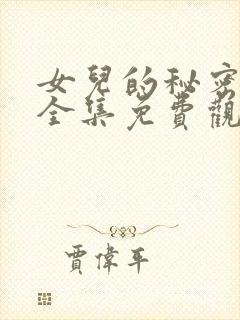 女兒的秘密
全集免費觀
賈偉平